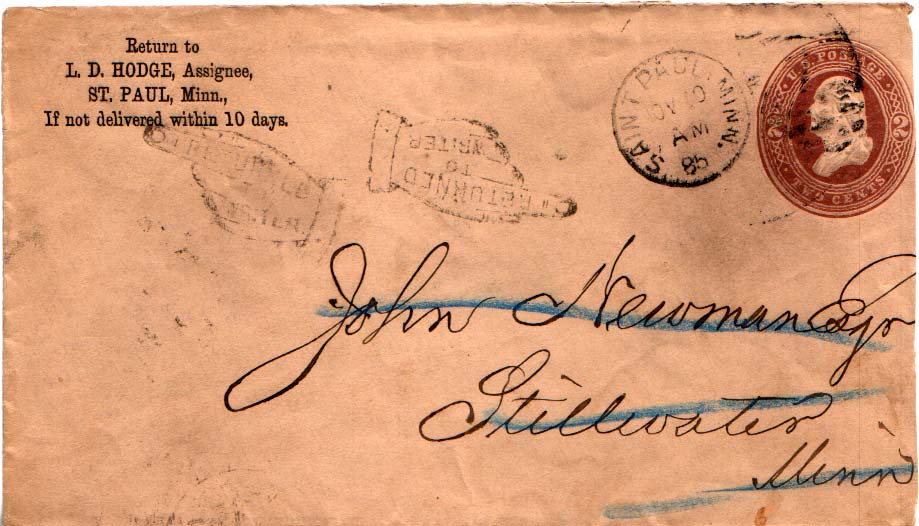 Return to
L. D. HODGE, Assignee,
ST. PAUL, Minn.,
If not delivered within 10 days.
RETURNED
TO
WRITER
SAINT PAUL, MINN.
10
AM
85
U.S. POSTAGE
2 2
TWO CENTS
John Newman Esqr
Stillwater
Minn
6